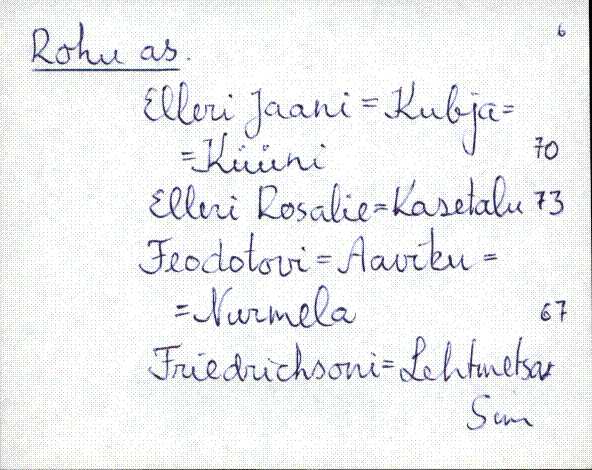 6
Rohu as.
Elleri Jaani = Kubja =
= Küüni 70
Elleri Rosalie = Kasetalu 73
Feodotovi = Aaviku =
= Nurmela 67
Friedrichsoni = Lehtmetsa